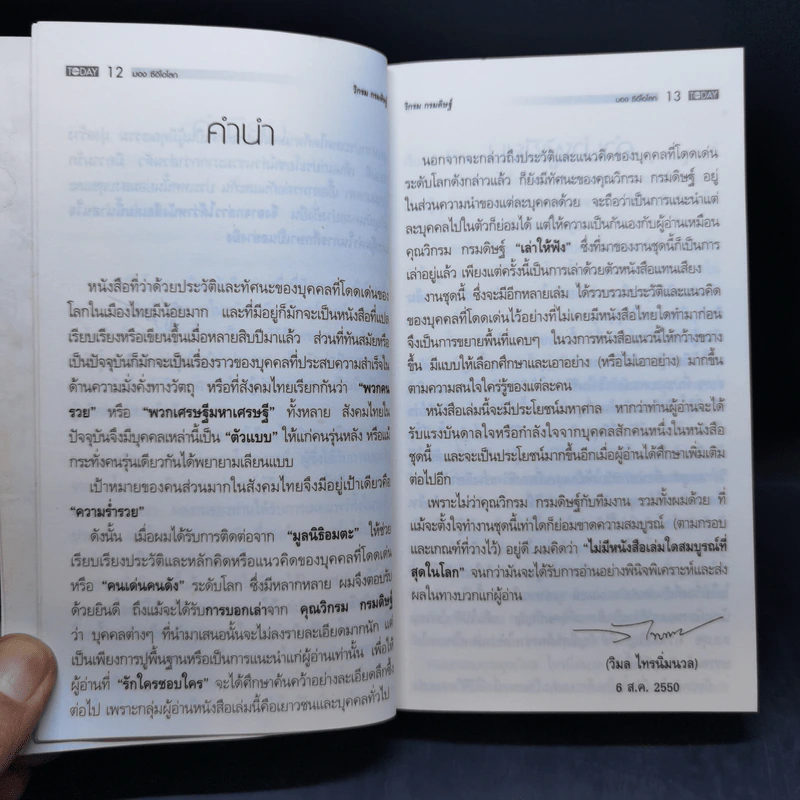 TODAY 12 มอง ซีอีโอโลก
วิกรม กรมดิษฐ์
คำนำ
หนังสือที่ว่าด้วยประวัติและทัศนะของบุคคลที่โดดเด่นของ
โลกในเมืองไทยมีน้อยมาก และที่มีอยู่ก็มักจะเป็นหนังสือที่แปล
เรียบเรียงหรือเขียนขึ้นเมื่อหลายสิบปีมาแล้ว ส่วนที่ทันสมัยหรือ
เป็นปัจจุบันก็มักจะเป็นเรื่องราวของบุคคลที่ประสบความสำเร็จใน
ด้านความมั่งคั่งทางวัตถุ หรือที่สังคมไทยเรียกกันว่า "พวกคน
รวย" หรือ "พวกเศรษฐีมหาเศรษฐี" ทั้งหลาย สังคมไทยใน
ปัจจุบันจึงมีบุคคลเหล่านี้เป็น "ตัวแบบ" ให้แก่คนรุ่นหลัง หรือแม้
กระทั่งคนรุ่นเดียวกันได้พยายามเลียนแบบ
เป้าหมายของคนส่วนมากในสังคมไทยจึงมีอยู่เป้าเดียวคือ
"ความร่ำรวย"
ดังนั้น เมื่อผมได้รับการติดต่อจาก "มูลนิธิอมตะ" ให้ช่วย
เรียบเรียงประวัติและหลักคิดหรือแนวคิดของบุคคลที่โดดเด่น
หรือ "คนเด่นคนดัง" ระดับโลก ซึ่งมีหลากหลาย ผมจึงตอบรับ
ด้วยยินดี ถึงแม้จะได้รับการบอกเล่าจาก คุณวิกรม กรมดิษฐ์
ว่า บุคคลต่างๆ ที่นำมาเสนอนั้นจะไม่ลงรายละเอียดมากนัก แต่
เป็นเพียงการปูพื้นฐานหรือเป็นการแนะนำแก่ผู้อ่านเท่านั้น เพื่อให้
ผู้อ่านที่ "รักใครชอบใคร" จะได้ศึกษาค้นคว้าอย่างละเอียดลึกซึ้ง
ต่อไป เพราะกลุ่มผู้อ่านหนังสือเล่มนี้คือเยาวชนและบุคคลทั่วไป
วิกรม กรมดิษฐ์
มอง ซีอีโอโลก 13 TODAY
นอกจากจะกล่าวถึงประวัติและแนวคิดของบุคคลที่โดดเด่น
ระดับโลกดังกล่าวแล้ว ก็ยังมีทัศนะของคุณวิกรม กรมดิษฐ์ อยู่
ในส่วนความนำของแต่ละบุคคลด้วย จะถือว่าเป็นการแนะนำแต่
ละบุคคลไปในตัวก็ย่อมได้ แต่ให้ความเป็นกันเองกับผู้อ่านเหมือน
คุณวิกรม กรมดิษฐ์ "เล่าให้ฟัง" ซึ่งที่มาของงานชุดนี้ก็เป็นการ
เล่าอยู่แล้ว เพียงแต่ครั้งนี้เป็นการเล่าด้วยตัวหนังสือแทนเสียง
งานชุดนี้ ซึ่งจะมีอีกหลายเล่ม ได้รวบรวมประวัติและแนวคิด
ของบุคคลที่โดดเด่นไว้อย่างที่ไม่เคยมีหนังสือไทยใดทำมาก่อน
จึงเป็นการขยายพื้นที่แคบๆ ในวงการหนังสือแนวนี้ให้กว้างขวาง
ขึ้น มีแบบให้เลือกศึกษาและเอาอย่าง (หรือไม่เอาอย่าง) มากขึ้น
ตามความสนใจใคร่รู้ของแต่ละคน
หนังสือเล่มนี้จะมีประโยชน์มหาศาล หากว่าท่านผู้อ่านจะได้
รับแรงบันดาลใจหรือกำลังใจจากบุคคลสักคนหนึ่งในหนังสือ
ชุดนี้ และจะเป็นประโยชน์มากขึ้นอีกเมื่อผู้อ่านได้ศึกษาเพิ่มเติม
ต่อไปอีก
เพราะไม่ว่าคุณวิกรม กรมดิษฐ์กับทีมงาน รวมทั้งผมด้วย ที่
แม้จะตั้งใจทำงานชุดนี้เท่าใดก็ย่อมขาดความสมบูรณ์ (ตามกรอบ
และเกณฑ์ที่วางไว้) อยู่ดี ผมคิดว่า "ไม่มีหนังสือเล่มใดสมบูรณ์ที่
สุดในโลก" จนกว่ามันจะได้รับการอ่านอย่างพินิจพิเคราะห์และส่ง
ผลในทางบวกแก่ผู้อ่าน
(วิมล ไทรนิ่มนวล)
6 ส.ค. 2550